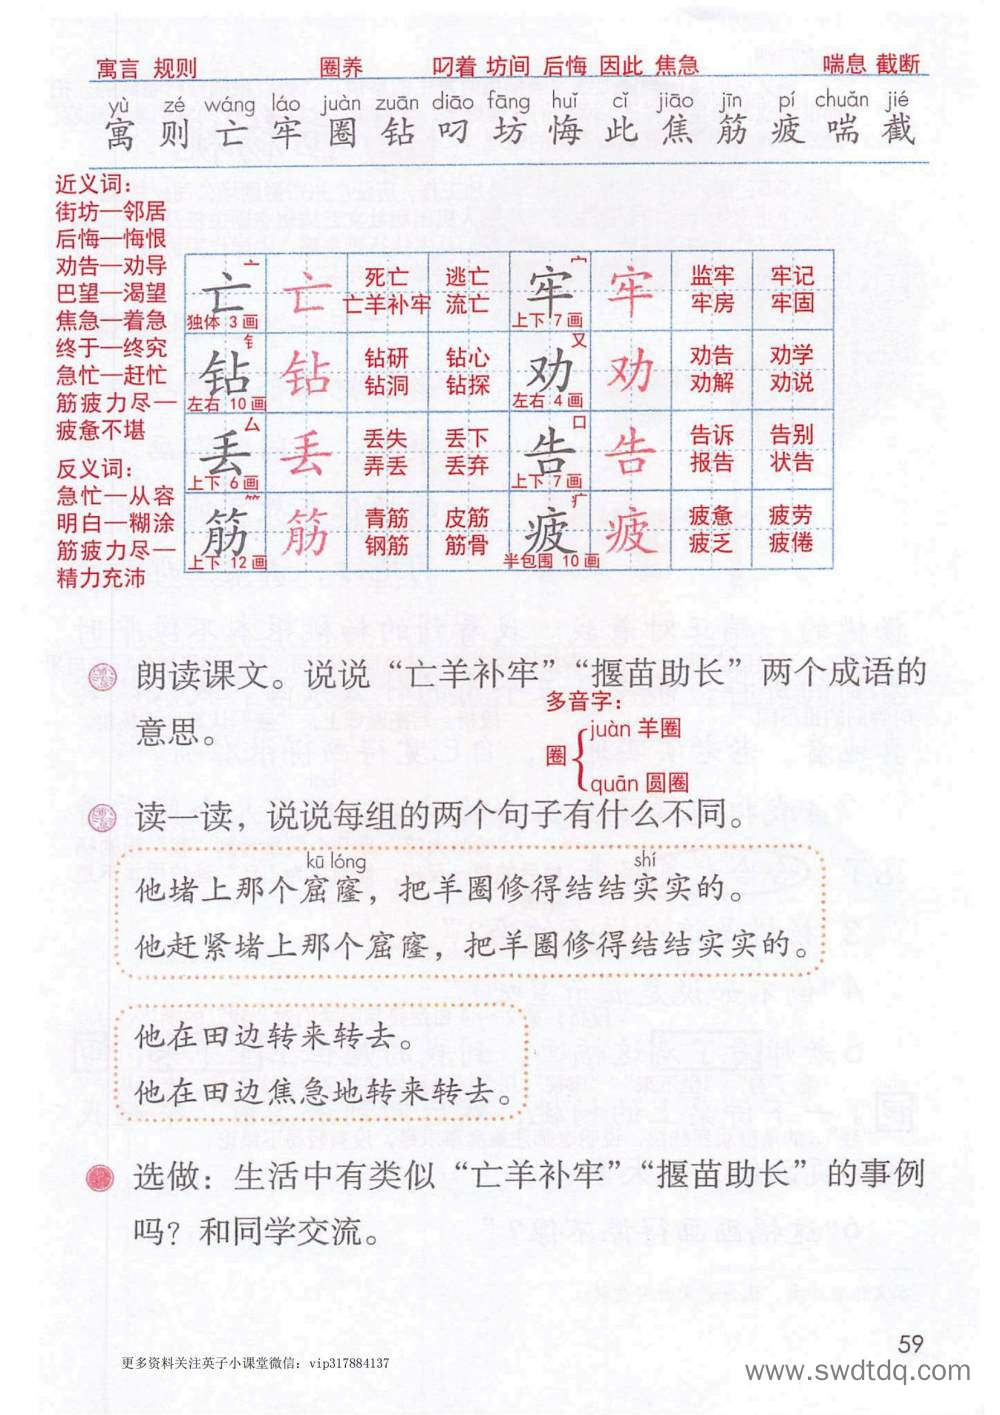 寓言 规则 圈养 叼着 坊间 后悔 因此 焦急 喘息 截断
yù zé wáng láo juàn zuān diāo fāng huǐ cǐ jiāo jīn pí chuǎn jié
寓 则 亡 牢 圈 钻 叼 坊 悔 此 焦 筋 疲 喘 截
近义词：
街坊—邻居
后悔—悔恨
劝告—劝导
巴望—渴望
焦急—着急
终于—终究
急忙—赶忙
筋疲力尽—
疲惫不堪
反义词：
急忙—从容
明白—糊涂
筋疲力尽—
精力充沛
亡 亠 亡 死亡 逃亡 牢 宀 牢 监牢 牢记
独体 3画 亡羊补牢 流亡 上下 7画 牢房 牢固
钻 钅 钻 钻研 钻心 劝 又 劝 劝告 劝学
左右 10画 钻洞 钻探 左右 4画 劝解 劝说
丢 厶 丢 丢失 丢下 告 口 告 告诉 告别
上下 6画 弄丢 丢弃 上下 7画 报告 状告
筋 ⺮ 筋 青筋 皮筋 疲 疒 疲 疲惫 疲劳
上下 12画 钢筋 筋骨 半包围 10画 疲乏 疲倦
朗读课文。说说“亡羊补牢”“揠苗助长”两个成语的
意思。
多音字：
圈 juàn 羊圈
quān 圆圈
读一读，说说每组的两个句子有什么不同。
kū lóng shí
他堵上那个窟窿，把羊圈修得结结实实的。
他赶紧堵上那个窟窿，把羊圈修得结结实实的。
他在田边转来转去。
他在田边焦急地转来转去。
选做：生活中有类似“亡羊补牢”“揠苗助长”的事例
吗？和同学交流。
59
更多资料关注英子小课堂微信：vip317884137
www.swdtdq.com